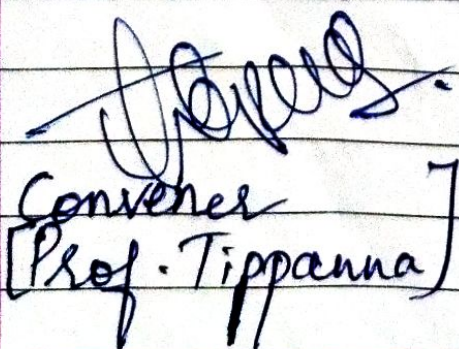 Convener
[Prof. Tippanna]